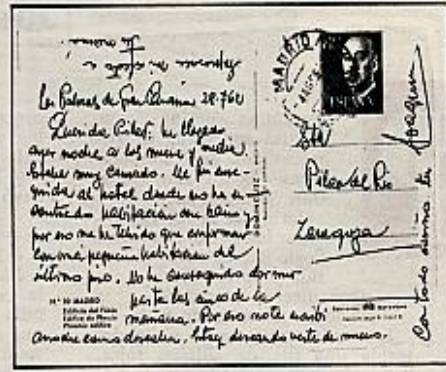 Las Palmas de Gran Canaria 28-7-60
Querida Pilar: he llegado
ayer noche a las nueve y media.
Estaba muy cansado. Me fui ense-
guida al hotel donde no he en-
contrado habitación con baño y
por eso me he tenido que conformar
con una pequeña habitación del
último piso. No he conseguido dormir
hasta las cinco de la
mañana. Por eso no te escribí
anoche como deseaba. Estoy deseando verte de nuevo.
Con todo cariño tu
Joaquín
MADRID
Pilar del Río
Zaragoza
Nº 10 MADRID
Edificio del Fénix